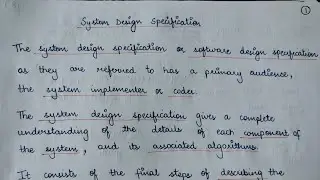 ①
System Design Specification
The system design specification or software design specification
as they are referred to has a primary audience,
the system implementer or coder.
The system design specification gives a complete
understanding of the details of each component of
the system, and its associated algorithms.
It consists of the final steps of describing the